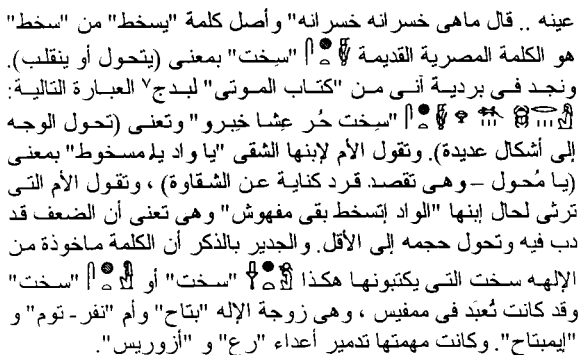 عينه .. قال ماهى خسرانه خسرانه" وأصل كلمة "يسخط" من "سخط"
هو الكلمة المصرية القديمة "سخت" بمعنى (يتحول أو ينقلب).
ونجد فى بردية آنى من "كتاب الموتى" لبدج٧ العبارة التالية:
"سِخت حُر عِشا خِبرو" وتعنى (تحول الوجه
إلى أشكال عديدة). وتقول الأم لإبنها الشقى "يا واد يا مسخوط" بمعنى
(يا مُحول – وهى تقصد قرد كناية عن الشقاوة) ، وتقول الأم التى
ترثى لحال إبنها "الواد إتسخط بقى مفهوش" وهى تعنى أن الضعف قد
دب فيه وتحول حجمه إلى الأقل. والجدير بالذكر أن الكلمة ماخوذة من
الإلهه سخت التى يكتبونها هكذا "سخت" أو "سخت"
وقد كانت تُعبَد فى ممفيس ، وهى زوجة الإله "بتاح" وأم "نفر - توم" و
"إيمبتاح". وكانت مهمتها تدمير أعداء "رع" و "أزوريس".